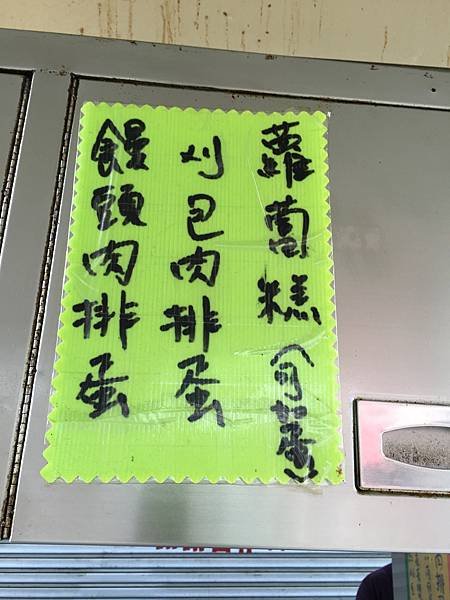 蘿蔔糕(可加蛋)
刈包肉排蛋
饅頭肉排蛋